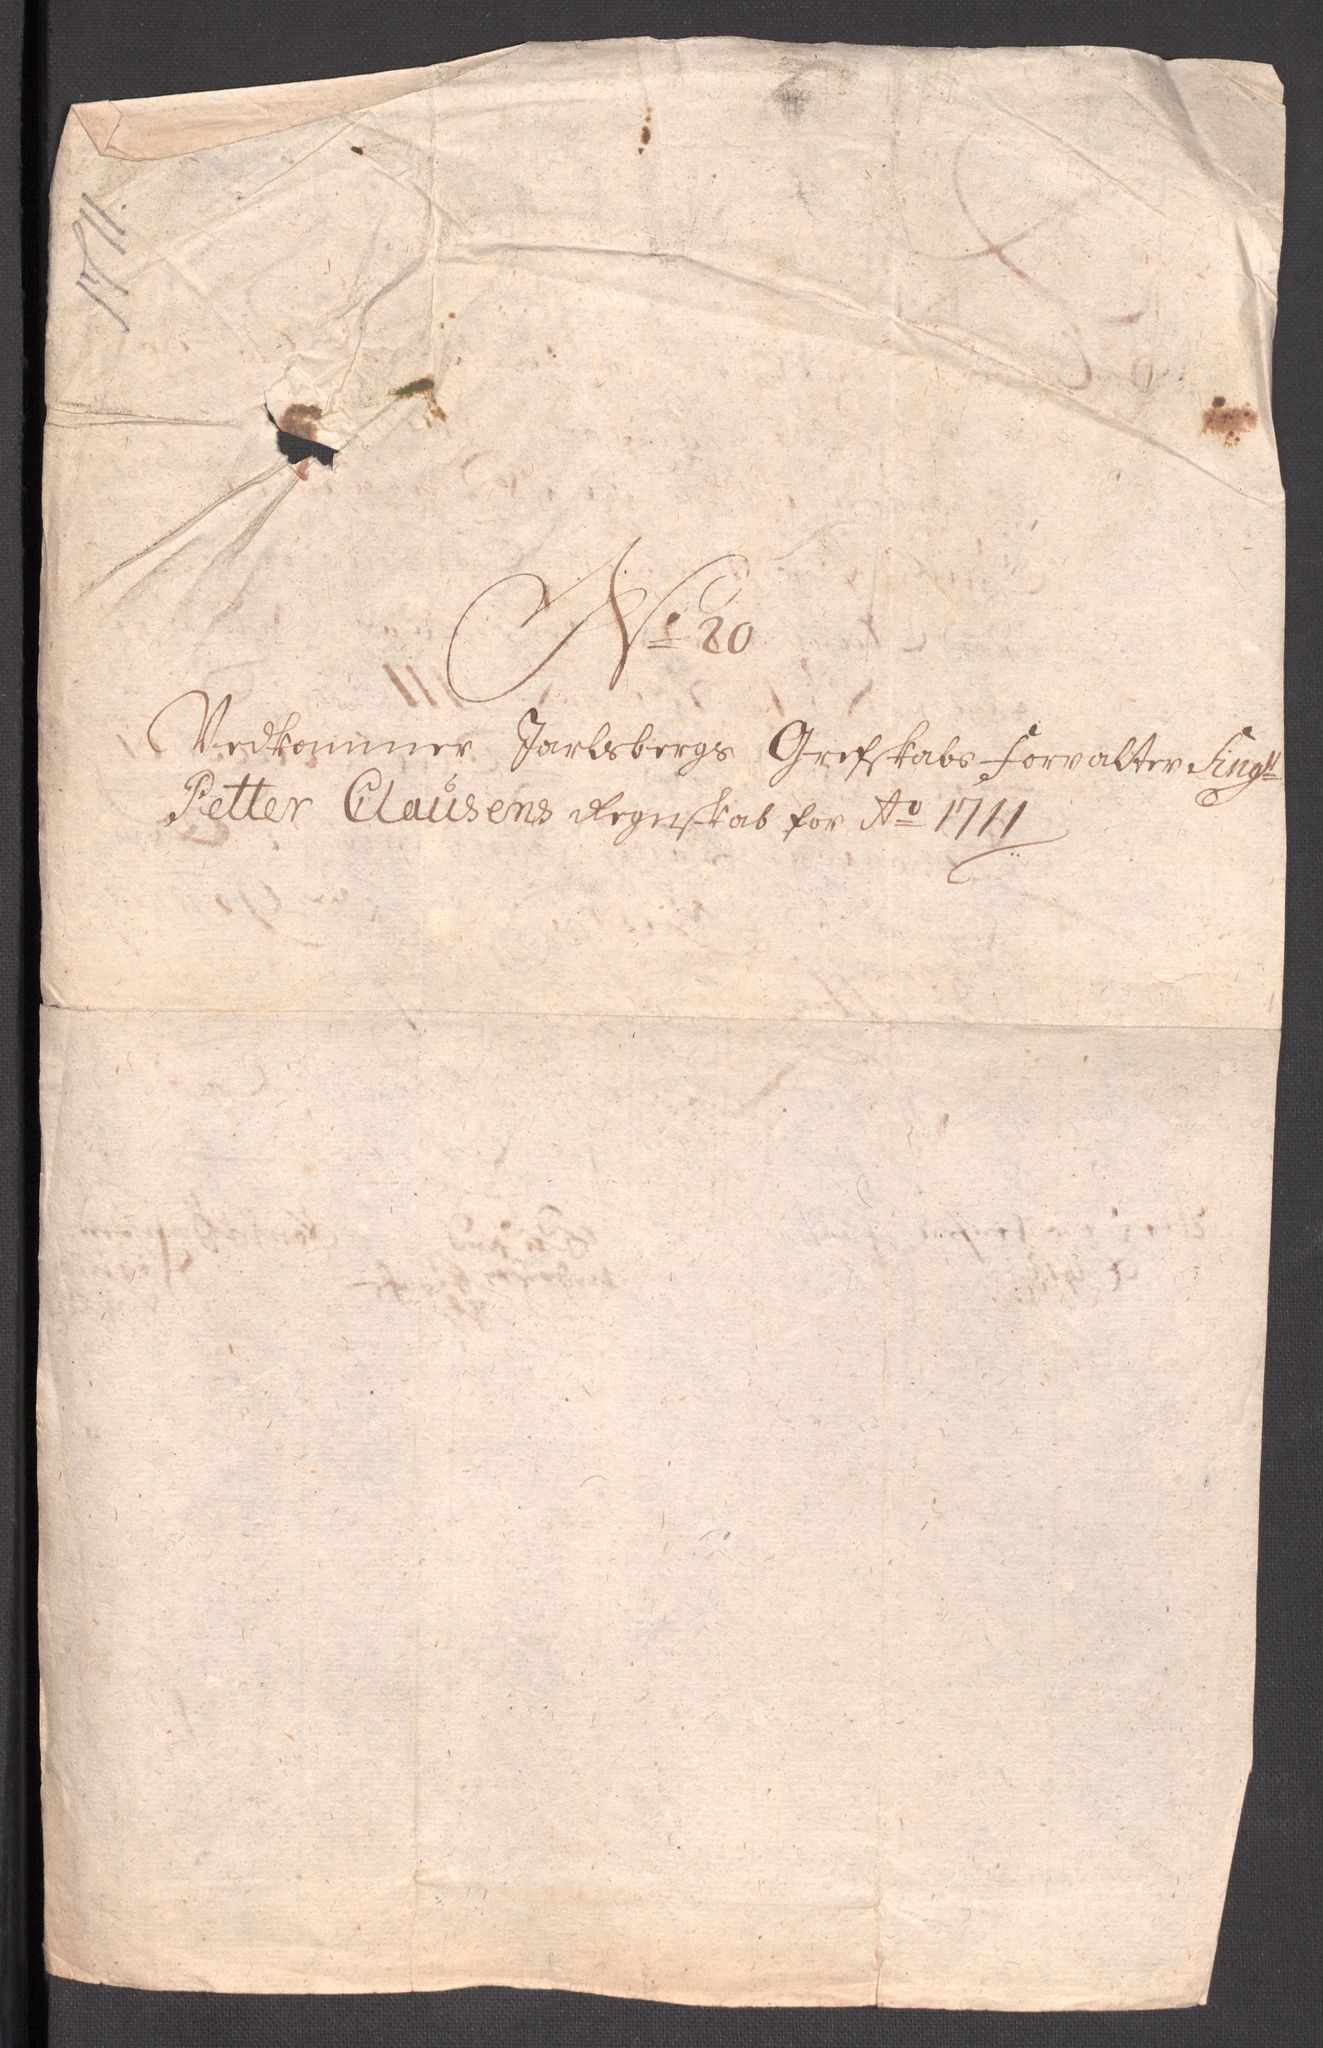 1711.
No 20
Vedkommer Jarlsbergs Grefskabs Forvalter Sing.r
Petter Clausens Regnskab for Ao 1711